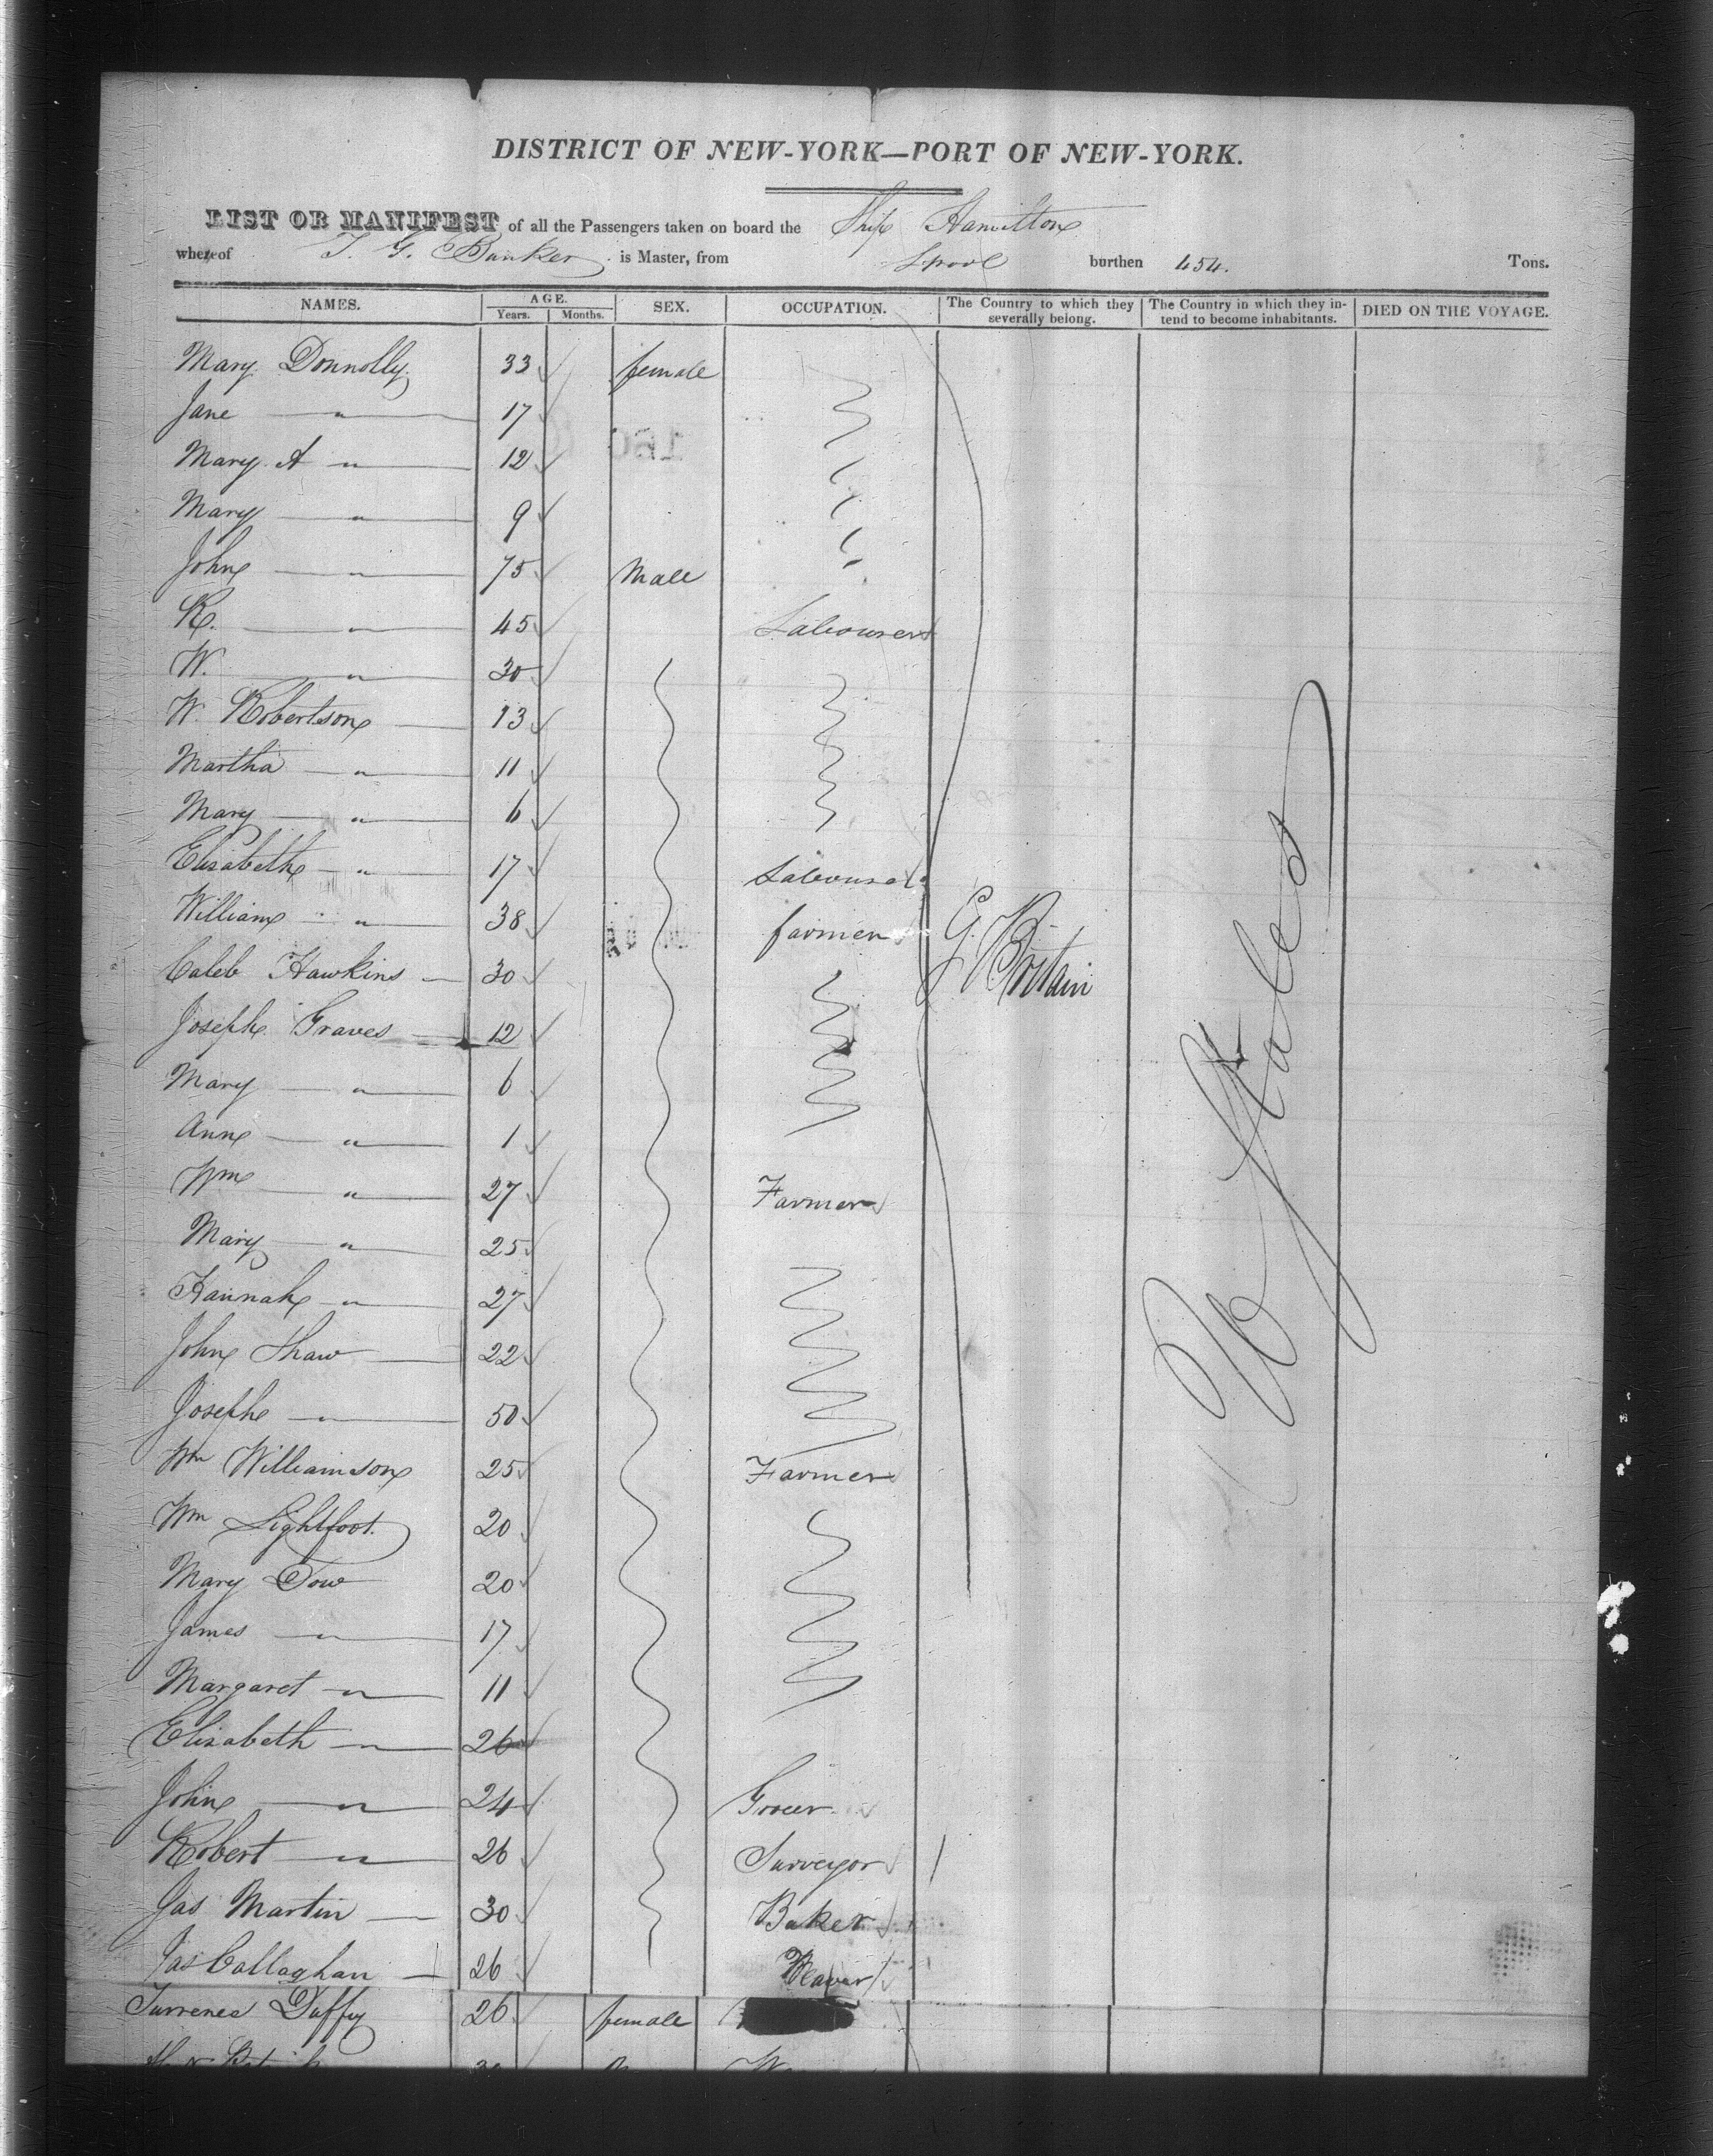 DISTRICT OF NEW-YORK—PORT OF NEW-YORK.
LIST OR MANIFEST of all the Passengers taken on board the Ship Hamilton
whereof T. G. Bunker is Master, from Lpool burthen 454. Tons.
NAMES. AGE. Years. Months. SEX. OCCUPATION. The Country to which they severally belong. The Country in which they intend to become inhabitants. DIED ON THE VOYAGE.
Mary Donnolly 33 female
Jane " 17
Mary A " 12
Mary " 9
John " 75 Male
K. " 45 Labourer
W. " 30
W. Robertson 13
Martha " 11
Mary " 6
Elisabeth " 17 Labourer
William " 38 farmer G. Britain
Caleb Hawkins 30
Joseph Graves 12
Mary " 6
Ann " 1
Wm " 27 Farmer
Mary " 25
Hannah " 27
John Shaw 22
Joseph " 50
Wm Williamson 25 Farmer
Wm Lightfoot 20
Mary Dow 20
James " 17
Margaret " 11
Elisabeth " 26
John " 24 Grocer
Robert " 26 Surveyor
Jas Martin 30 Baker
Jas Callaghan 26 Weaver
Duffy 26 female
U States